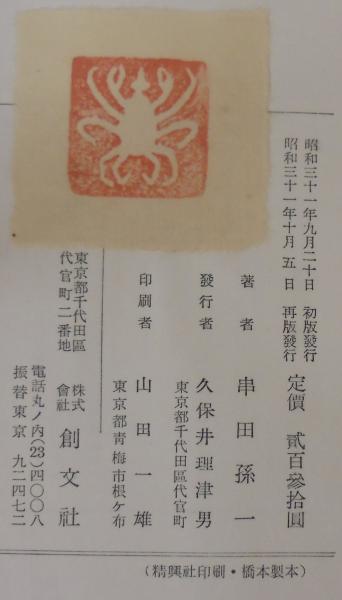 昭和三十一年九月二十日 初版發行
昭和三十一年十月五日 再版發行
定價 貳百參拾圓
著者 串田孫一
發行者 久保井理津男
東京都千代田區代官町
印刷者 山田一雄
東京都靑梅市根ケ布
東京都千代田區
代官町二番地
株式會社 創文社
電話丸ノ內(23)四〇〇八
振替東京 九二四七二
(精興社印刷・橋本製本)